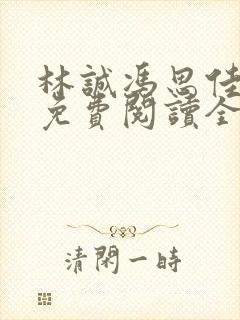 林誠馮思佳
免費閱讀全
清閑一時